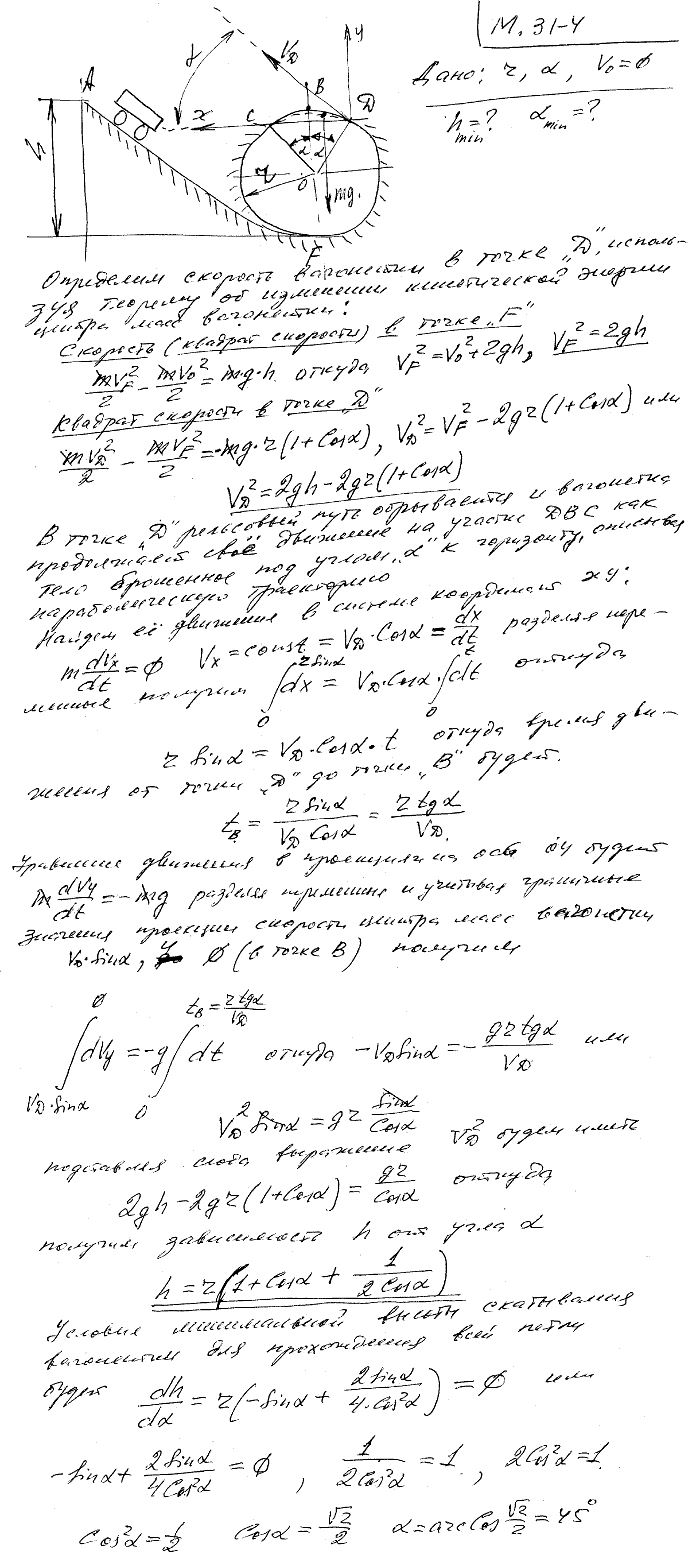 М. 31-4
Дано: r, α, V₀=0
h min=? α min=?
γ V_D B y
A x C D
h r α α O mg
F
Определим скорость вагонетки в точке „D", исполь-
зуя теорему об изменении кинетической энергии
центра масс вагонетки:
Скорость (квадрат скорости) в точке „F"
mV_F²/2 - mV₀²/2 = m·g·h откуда V_F²=V₀²+2gh, V_F²=2gh
Квадрат скорости в точке „D"
mV_D²/2 - mV_F²/2 = -mg·r(1+Cosα), V_D²=V_F²-2gr(1+Cosα) или
V_D²=2gh-2gr(1+Cosα)
В точке „D" рельсовый путь обрывается и вагонетка
продолжает своё движение на участке DBC как
тело брошенное под углом „α" к горизонту, описывая
параболическую траекторию
Найдём её движения в системе координат xy:
m dVx/dt=0 Vx=const=V_D·Cosα=dx/dt разделяя пере-
менные получим ∫₀^{r sinα} dx = V_D·Cosα·∫₀^t dt откуда
r sinα=V_D·Cosα·t откуда время дви-
жения от точки „D" до точки „B" будет.
t_B= r sinα/(V_D Cosα) = r tgα/V_D.
Уравнение движения в проекции на ось oy будет
m dVy/dt=-mg разделяя переменные и учитывая граничные
значения проекции скорости центра масс вагонетки
V_D·sinα, 0 (в точке B) получим
∫_{V_D·sinα}^0 dVy=-g∫₀^{t_B=r tgα/V_D} dt откуда -V_D sinα=- gr tgα/V_D или
V_D² sinα=gr sinα/Cosα
подставляя сюда выражение V_D² будем иметь
2gh-2gr(1+Cosα)= gr/Cosα откуда
получим зависимость h от угла α
h=r(1+Cosα+ 1/(2Cosα))
Условие минимальной высоты скатывания
вагонетки для прохождения всей петли
будет dh/dα=r(-sinα+ 2sinα/(4·Cos²α))=0 или
-sinα+ 2sinα/(4Cos²α)=0, 1/(2Cos²α)=1, 2Cos²α=1.
Cos²α=1/2 Cosα=√2/2 α=arcCos √2/2=45°